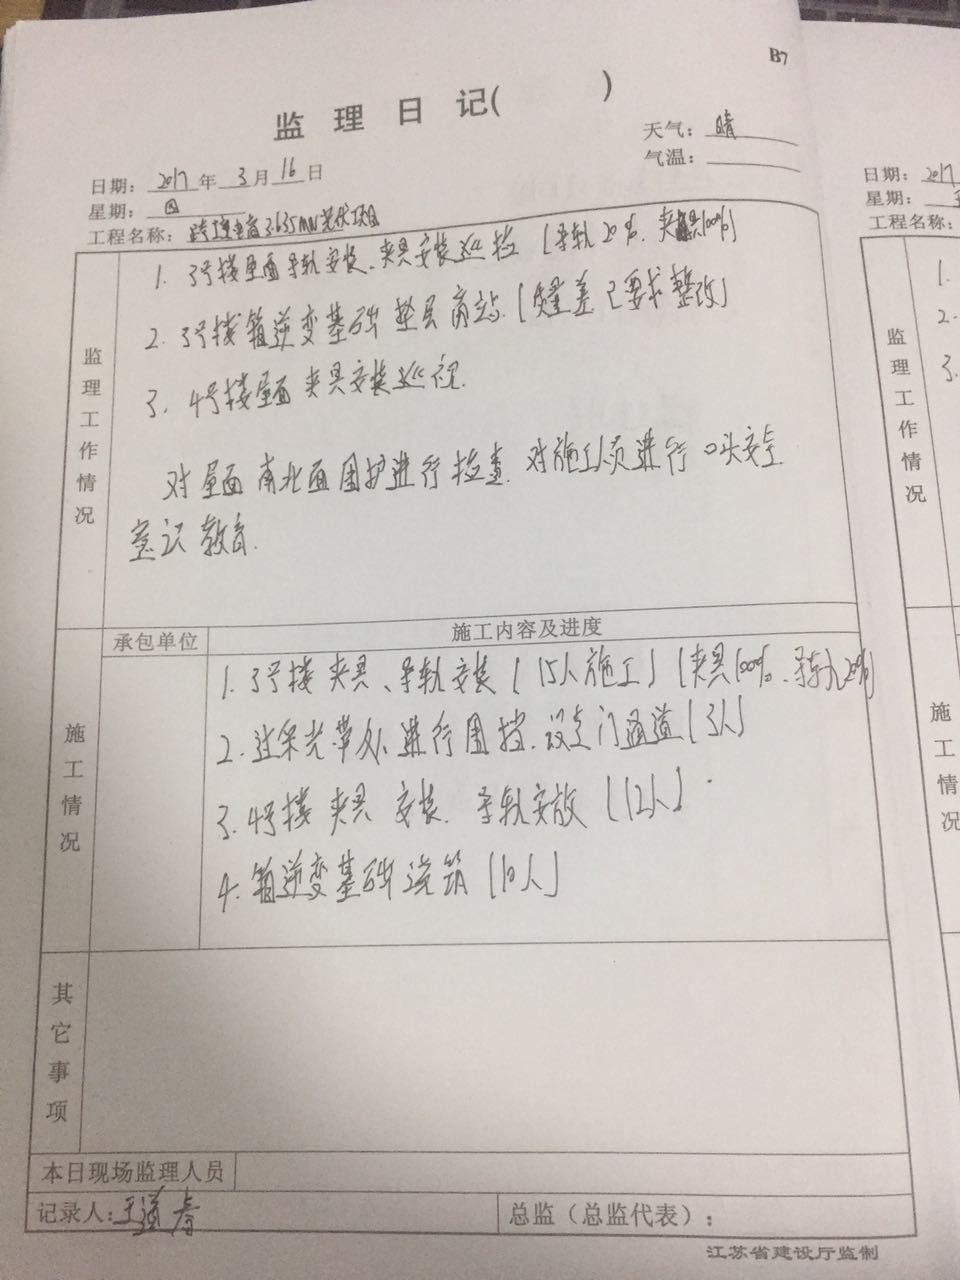 B7
监 理 日 记( )
天气: 晴
气温:
日期: 2017 年 3 月 16 日
星期: 四
工程名称: 3.635MW光伏项目
监理工作情况
1. 3号楼屋面导轨安装、夹具安装巡检 (导轨20%、夹具100%)
2. 3号楼箱逆变基础垫层旁站. (质量差 已要求整改)
3. 4号楼屋面夹具安装巡视.
对屋面南北面围护进行检查. 对施工人员进行口头安全
意识教育.
承包单位
施工内容及进度
施工情况
1. 3号楼夹具、导轨安装 (15人施工) (夹具100%、导轨20%)
2. 边采光带处进行围挡. 设立门通道 (3人)
3. 4号楼夹具安装. 导轨安放 (12人)
4. 箱逆变基础浇筑 (10人)
其它事项
本日现场监理人员
记录人: 王道
总监（总监代表）:
江苏省建设厅监制
日期: 2017
星期:
工程名称:
监理工作情况
1.
2.
3.
施工情况